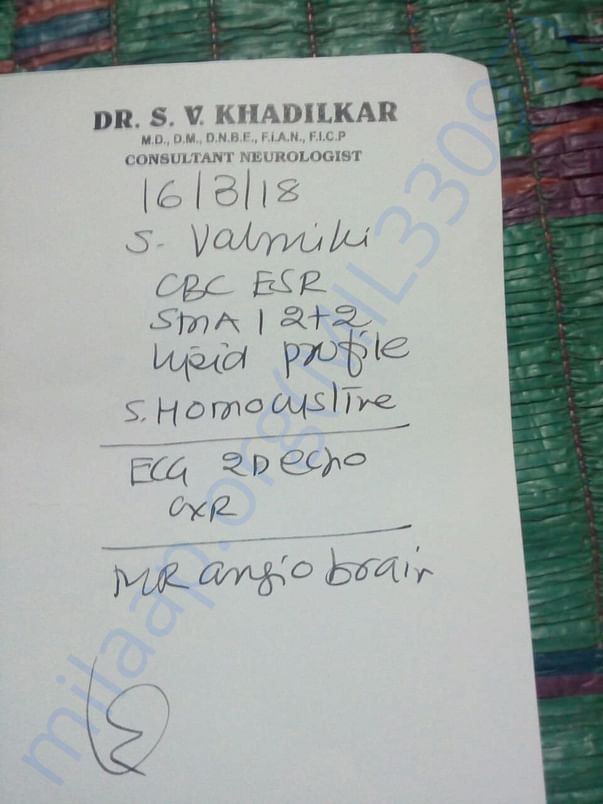 DR. S. V. KHADILKAR
M.D., D.M., D.N.B.E., F.I.A.N., F.I.C.P
CONSULTANT NEUROLOGIST
16/3/18
S. Valmiki
CBC ESR
SMA 12+2
lipid profile
S. Homocystine
ECG 2D echo
CXR
MR angio brain
milaap.org(MIL3309